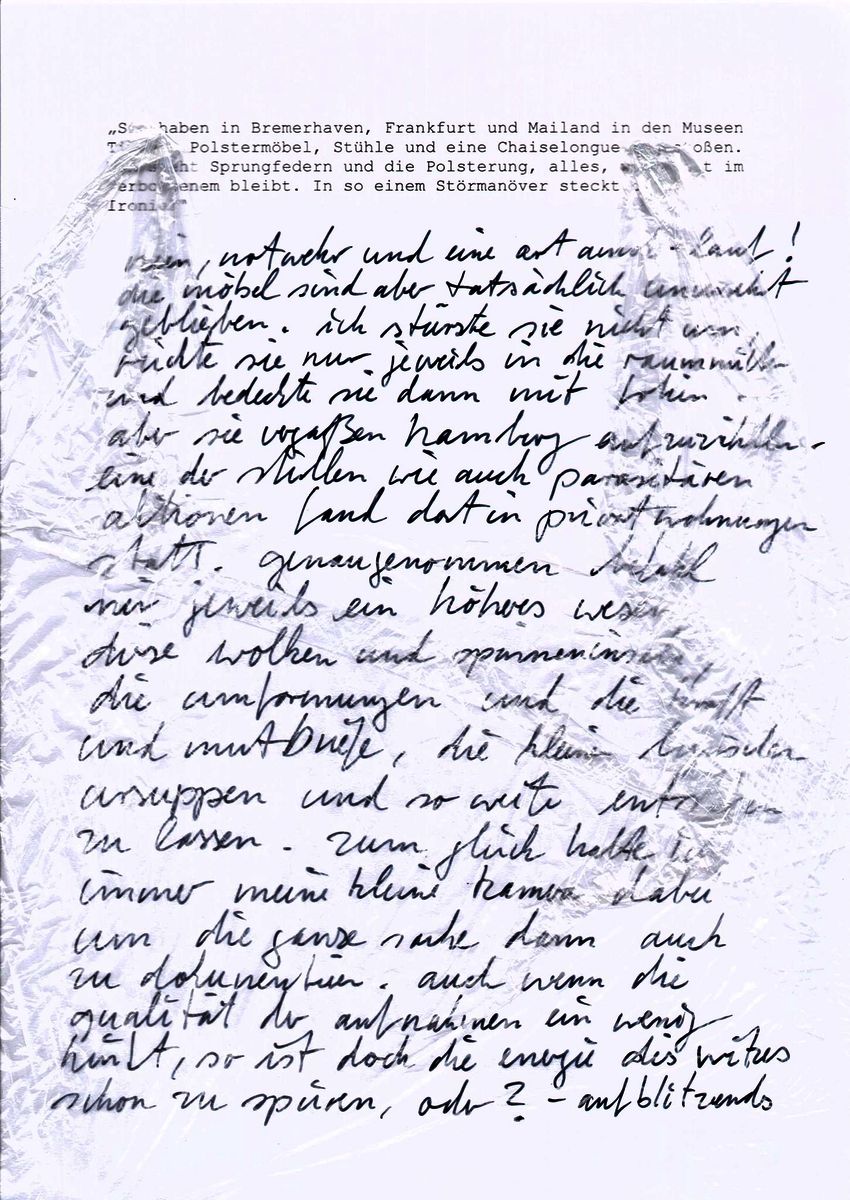 haben in Bremerhaven, Frankfurt und Mailand in den Museen
Polstermöbel, Stühle und eine Chaiselongue
Sprungfedern und die Polsterung, alles, im
bleibt. In so einem Störmanöver steckt
nein, notwehr und eine art amok-lauf!
die möbel sind aber tatsächlich unversehrt
geblieben. ich stürzte sie nicht um,
rückte sie nur jeweils in die raummitte
und bedeckte sie dann mit folien.
aber sie vergaßen hamburg aufzuzählen.
eine der stillen wie auch parasitären
aktionen fand dort in privatwohnungen
statt. genaugenommen befahl
mir jeweils ein höheres wesen
diese wolken und spinneninseln,
die umformungen und die
und die kleine
ursuppen und so weiter entstehen
zu lassen. zum glück hatte ich
immer meine kleine kamera dabei
um die ganze sache dann auch
zu dokumentieren. auch wenn die
qualität der aufnahmen ein wenig
hinkt, so ist doch die energie des witzes
schon zu spüren, oder? – aufblitzends